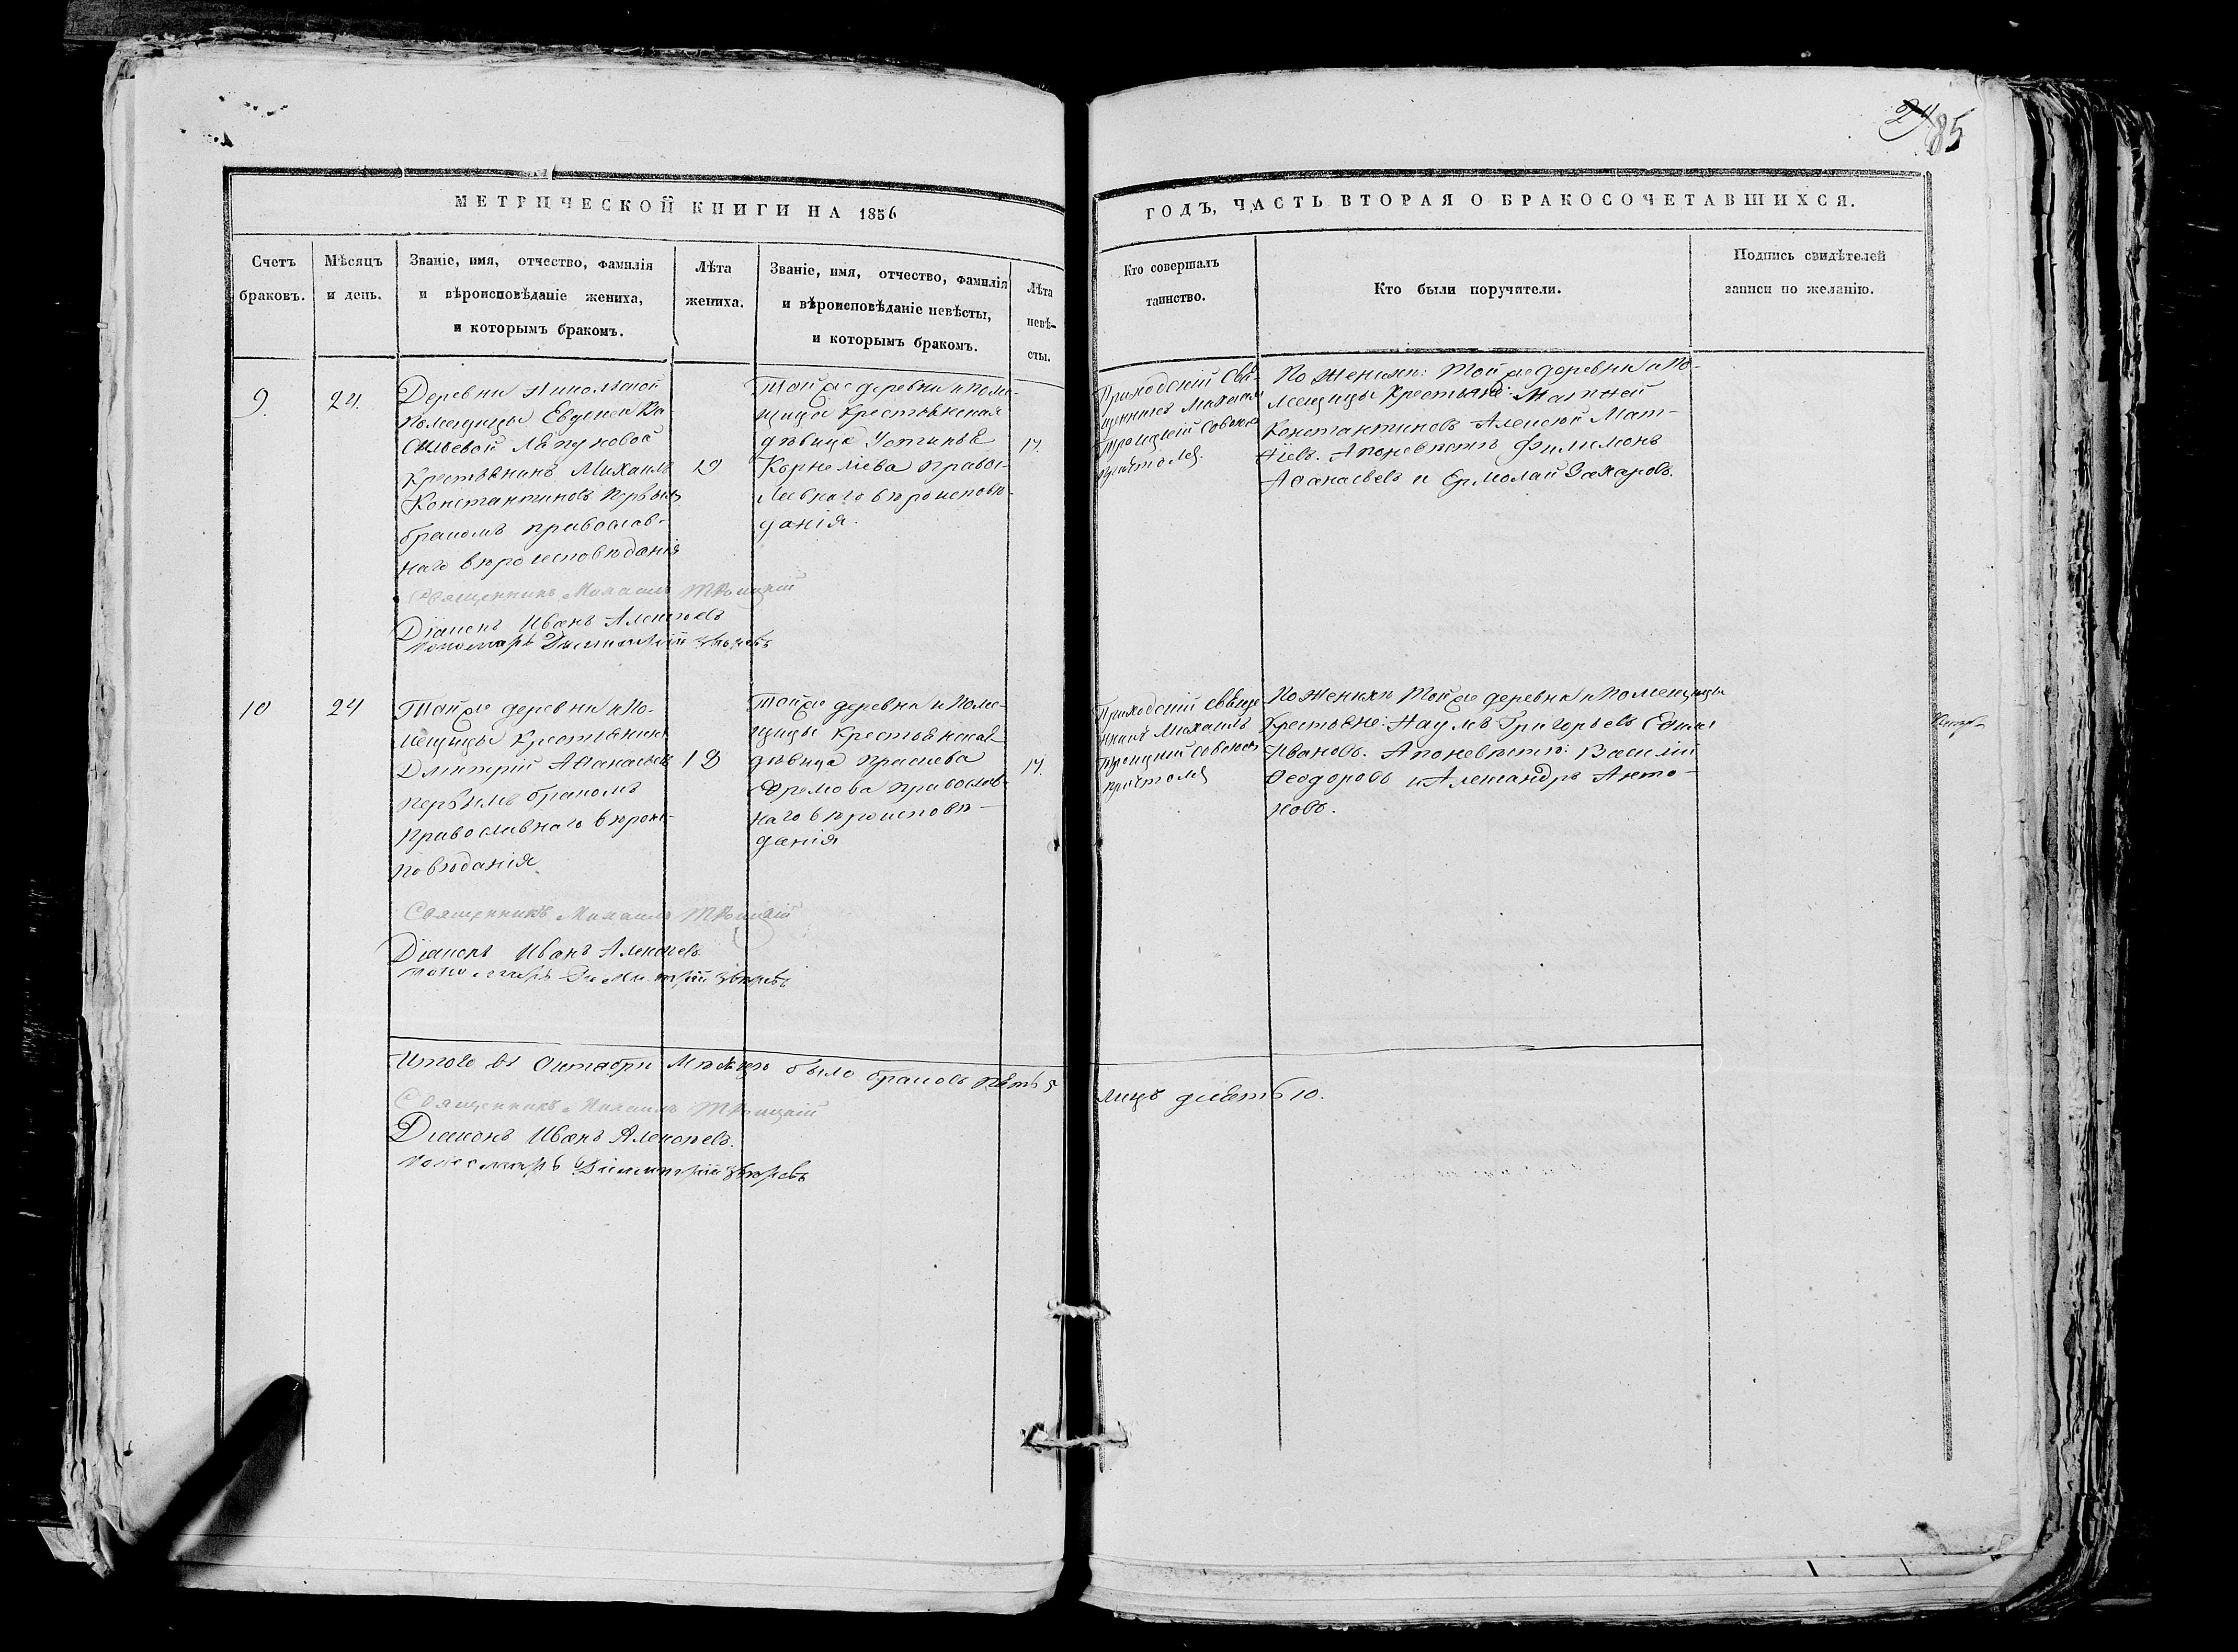 24 85
МЕТРИЧЕСКОЙ КНИГИ НА 1856
ГОДЪ, ЧАСТЬ ВТОРАЯ О БРАКОСОЧЕТАВШИХСЯ.
Счетъ
браковъ.
Мѣсяцъ
и день.
Званіе, имя, отчество, фамилія
и вѣроисповѣданіе жениха,
и которымъ бракомъ.
Лѣта
жениха.
Званіе, имя, отчество, фамилія
и вѣроисповѣданіе невѣсты,
и которымъ бракомъ.
Лѣта
невѣ-
сты.
Кто совершалъ
таинство.
Кто были поручители.
Подпись свидѣтелей
записи по желанію.
9.
24.
Деревни Никольской
Помещицы Евгенеи Ва-
сильевой Ляпуновой
Крестьянинъ Михаилъ
Константиновъ первымъ
бракомъ православ-
наго вѣроисповѣданія
19
Той же деревни и поме-
щицы Крестьянская
дѣвица Устинья
Корнеліева правос-
лавнаго вѣроисповѣ-
данія.
17.
Приходскій Свя-
щенникъ Михаилъ
Троицкій Совокоп
причтомъ.
По женихѣ: Той же деревни и По-
мещицы Крестьяне: Матѳей
Константиновъ Алексѣй Мат-
ѳіевъ. А по невѣстѣ Филимонъ
Аѳанасьевъ и Ермолай Захаровъ.
Священникъ Михаилъ Троицкій
Діаконъ Иванъ Алексѣевъ
Пономарь Димитрій
10
24
Той же деревни и По-
мещицы Крестьянинъ
Дмитрій Аѳанасьевъ
первымъ бракомъ
Православнаго вѣроис-
повѣданія.
18
Той же деревни и Поме-
щицы Крестьянская
дѣвица
православ-
наго вѣроисповѣ-
данія
17.
Приходскій свяще
нникъ Михаилъ
Троицкій Совокоп
причтомъ
По женихѣ Той же деревни и Помещицы
Крестьяне: Наумъ Григорьевъ
Ивановъ. А по невѣстѣ: Василій
Ѳеодоровъ и Александръ Анто-
новъ.
Священникъ Михаилъ Троицкій
Діаконъ Иванъ Алексѣевъ.
Пономарь Димитрій
Итого въ Октябрѣ Мѣсяцѣ было браковъ пять 5
лицъ 10.
Священникъ Михаилъ Троицкій
Діаконъ Иванъ Алексѣевъ.
Пономарь Димитрій